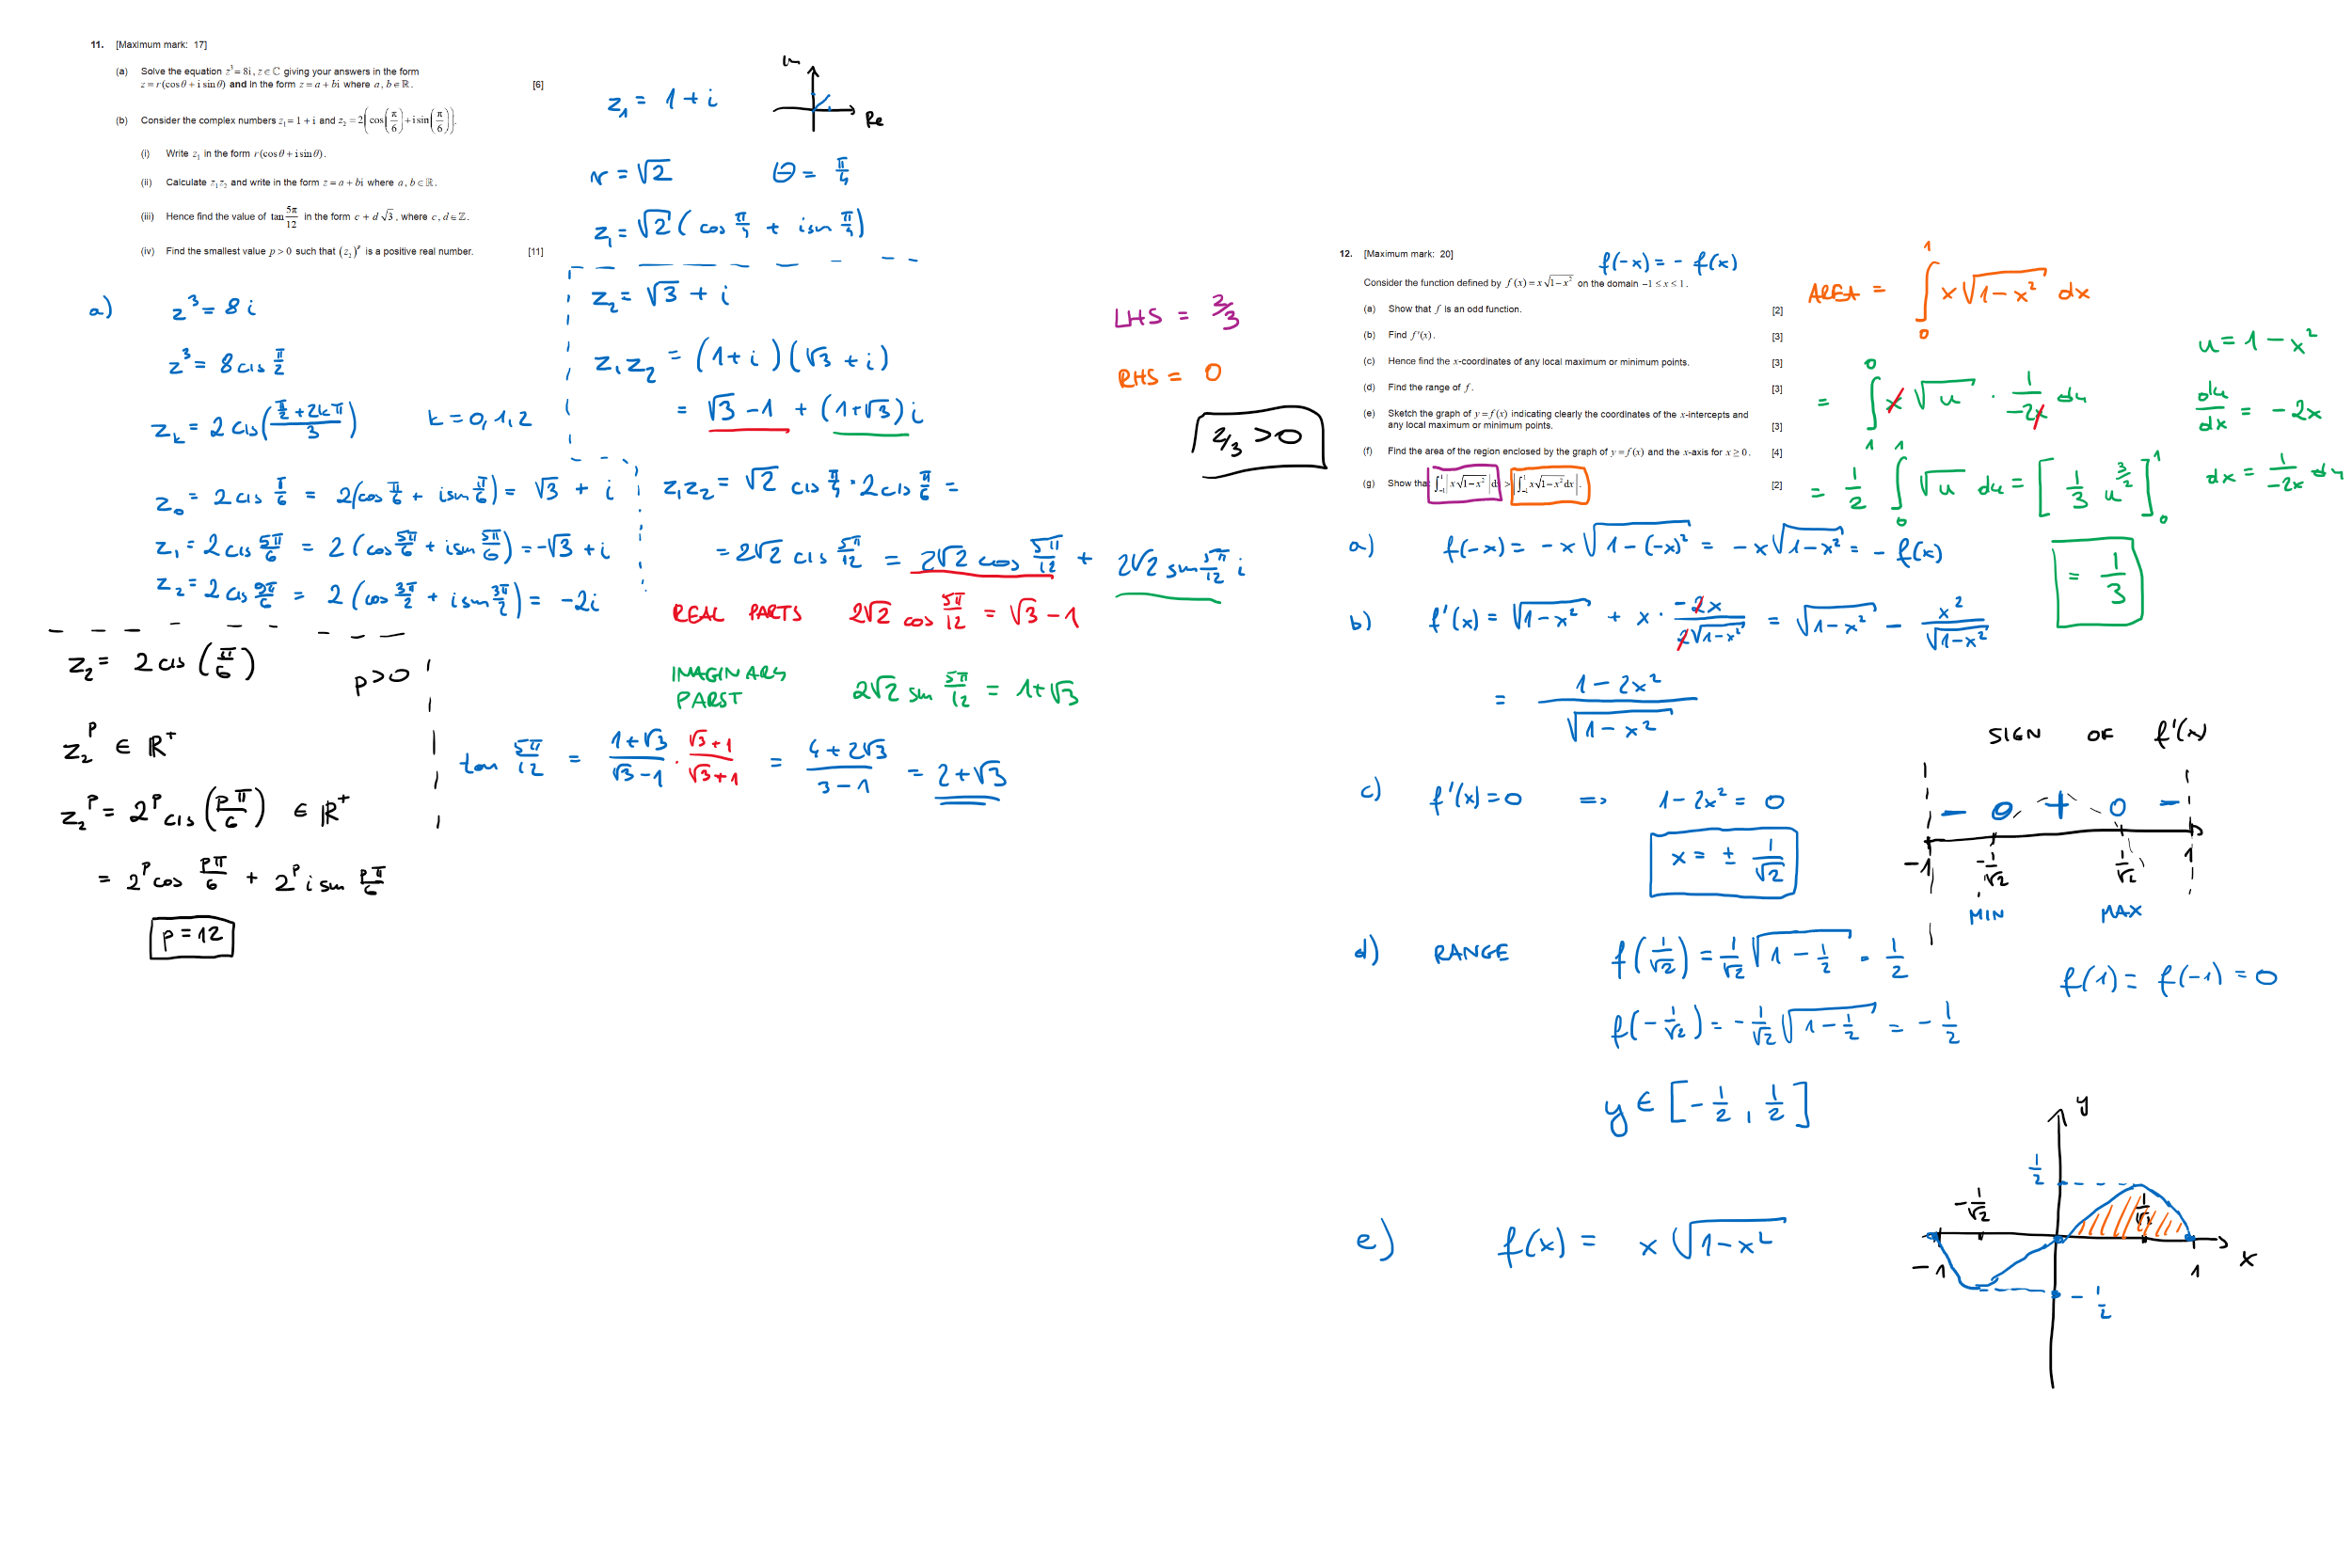 11. [Maximum mark: 17]
(a) Solve the equation z³ = 8i, z ∈ ℂ giving your answers in the form
z = r(cosθ + i sinθ) and in the form z = a + bi where a, b ∈ ℝ. [6]
(b) Consider the complex numbers z₁ = 1 + i and z₂ = 2(cos(π/6) + i sin(π/6)).
(i) Write z₁ in the form r(cosθ + i sinθ).
(ii) Calculate z₁z₂ and write in the form z = a + bi where a, b ∈ ℝ.
(iii) Hence find the value of tan 5π/12 in the form c + d√3, where c, d ∈ ℤ.
(iv) Find the smallest value p > 0 such that (z₂)ᵖ is a positive real number. [11]
a) z³ = 8i
z³ = 8 cis π/2
z_k = 2 cis((π/2 + 2kπ)/3) k = 0, 1, 2
z₀ = 2 cis π/6 = 2(cos π/6 + i sin π/6) = √3 + i
z₁ = 2 cis 5π/6 = 2(cos 5π/6 + i sin 5π/6) = -√3 + i
z₂ = 2 cis 9π/6 = 2(cos 3π/2 + i sin 3π/2) = -2i
z₂ = 2 cis(π/6) p>0
z₂ᵖ ∈ ℝ⁺
z₂ᵖ = 2ᵖ cis(pπ/6) ∈ ℝ⁺
= 2ᵖ cos pπ/6 + 2ᵖ i sin pπ/6
p = 12
z₁ = 1 + i
Im
Re
r = √2 θ = π/4
z₁ = √2(cos π/4 + i sin π/4)
z₂ = √3 + i
z₁z₂ = (1+i)(√3 + i)
= √3 - 1 + (1+√3)i
z₁z₂ = √2 cis π/4 · 2 cis π/6 =
= 2√2 cis 5π/12 = 2√2 cos 5π/12 + 2√2 sin 5π/12 i
REAL PARTS 2√2 cos 5π/12 = √3 - 1
IMAGINARY
PARST 2√2 sin 5π/12 = 1+√3
tan 5π/12 = (1+√3)/(√3-1) · (√3+1)/(√3+1) = (4+2√3)/(3-1) = 2+√3
LHS = 2/3
RHS = 0
2/3 > 0
12. [Maximum mark: 20]
f(-x) = -f(x)
Consider the function defined by f(x) = x√(1-x²) on the domain -1 ≤ x ≤ 1.
(a) Show that f is an odd function. [2]
(b) Find f'(x). [3]
(c) Hence find the x-coordinates of any local maximum or minimum points. [3]
(d) Find the range of f. [3]
(e) Sketch the graph of y = f(x) indicating clearly the coordinates of the x-intercepts and
any local maximum or minimum points. [3]
(f) Find the area of the region enclosed by the graph of y = f(x) and the x-axis for x ≥ 0. [4]
(g) Show tha ∫₋₁¹ |x√(1-x²)| d > |∫₋₁¹ x√(1-x²) dx|. [2]
AREA = ∫₀¹ x√(1-x²) dx
u = 1 - x²
= ∫₁⁰ x√u · 1/(-2x) du
du/dx = -2x
= 1/2 ∫₀¹ √u du = [1/3 u^(3/2)]₀¹
dx = 1/(-2x) du
= 1/3
a) f(-x) = -x√(1-(-x)²) = -x√(1-x²) = -f(x)
b) f'(x) = √(1-x²) + x · (-2x)/(2√(1-x²)) = √(1-x²) - x²/√(1-x²)
= (1-2x²)/√(1-x²)
SIGN OF f'(x)
c) f'(x)=0 => 1-2x² = 0
x = ± 1/√2
- 0 + 0 -
-1 -1/√2 1/√2 1
MIN MAX
d) RANGE f(1/√2) = 1/√2 √(1-1/2) = 1/2
f(1) = f(-1) = 0
f(-1/√2) = -1/√2 √(1-1/2) = -1/2
y ∈ [-1/2, 1/2]
e) f(x) = x√(1-x²)
y
1/2
-1/√2
1/√2
-1
1
x
-1/2